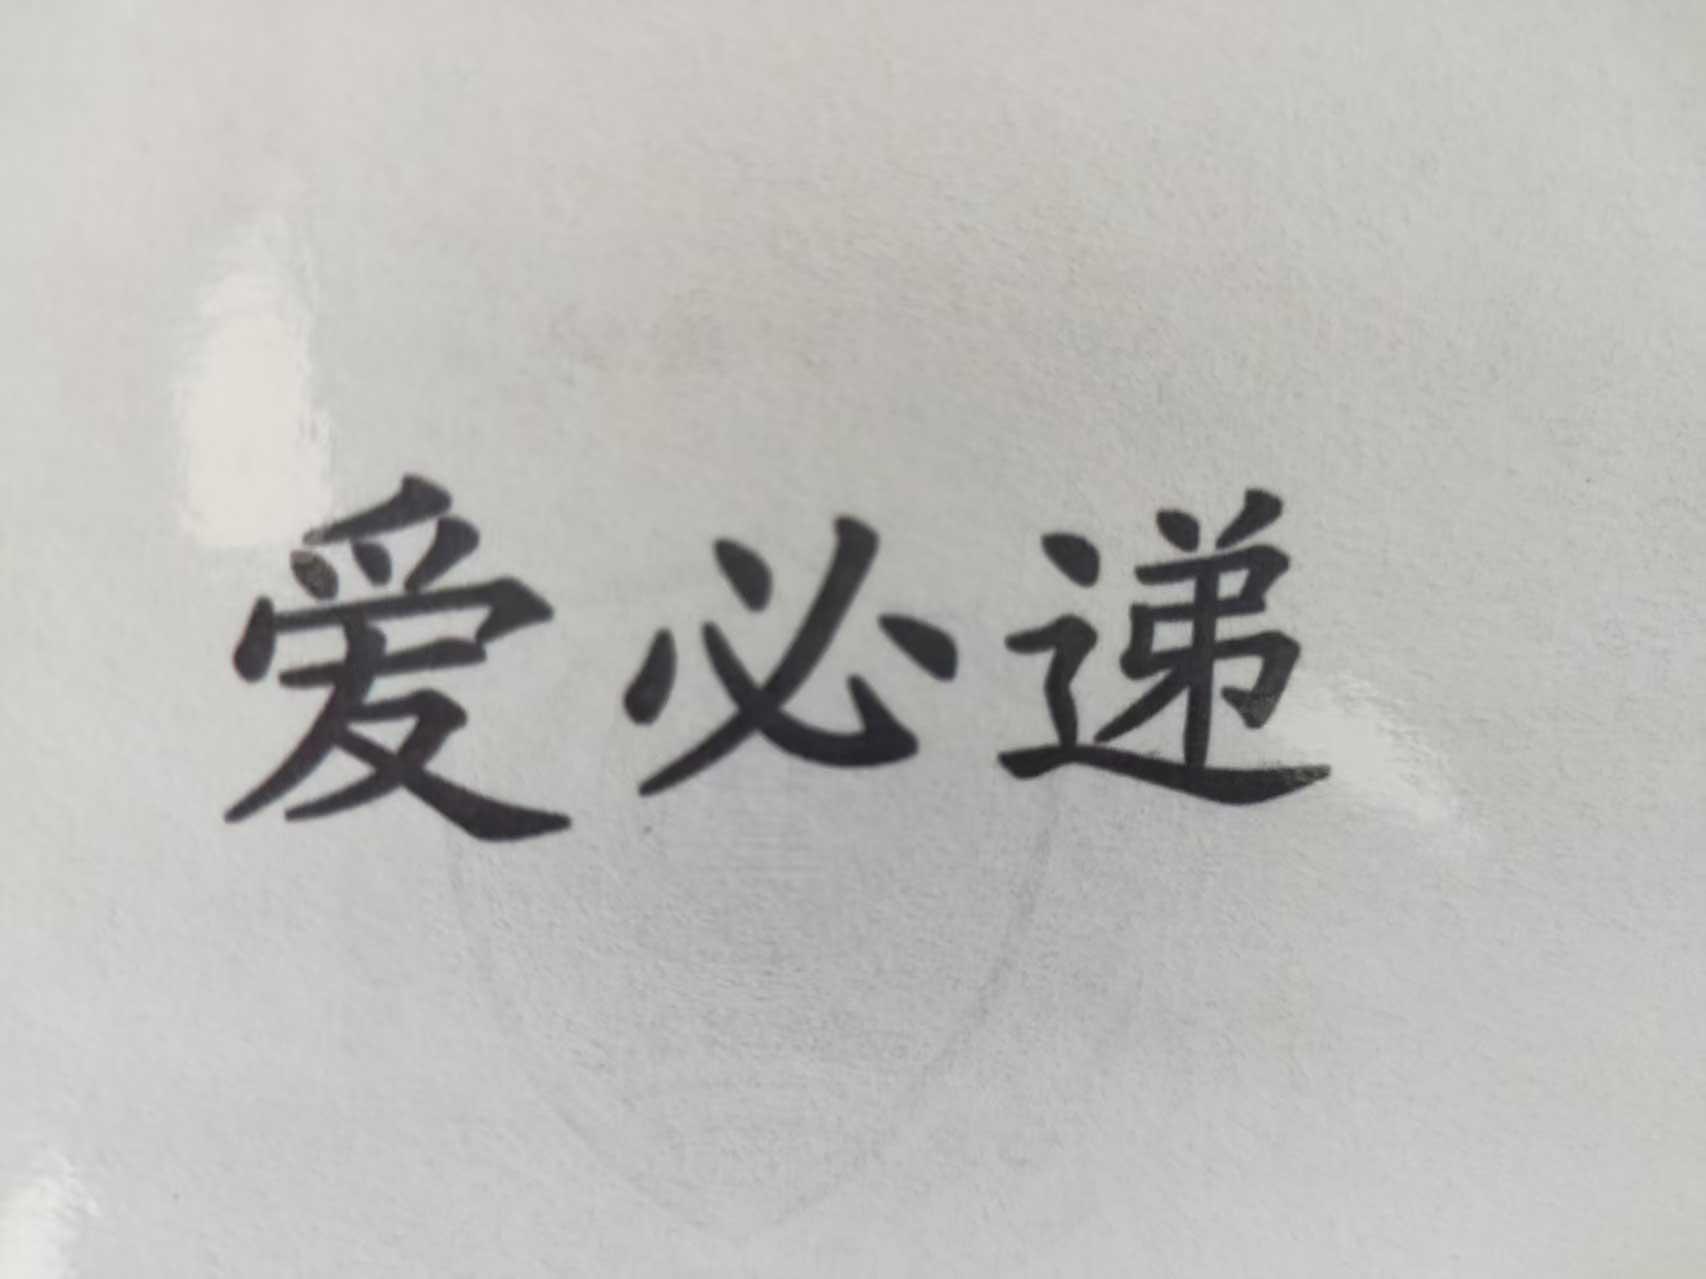 爱必递